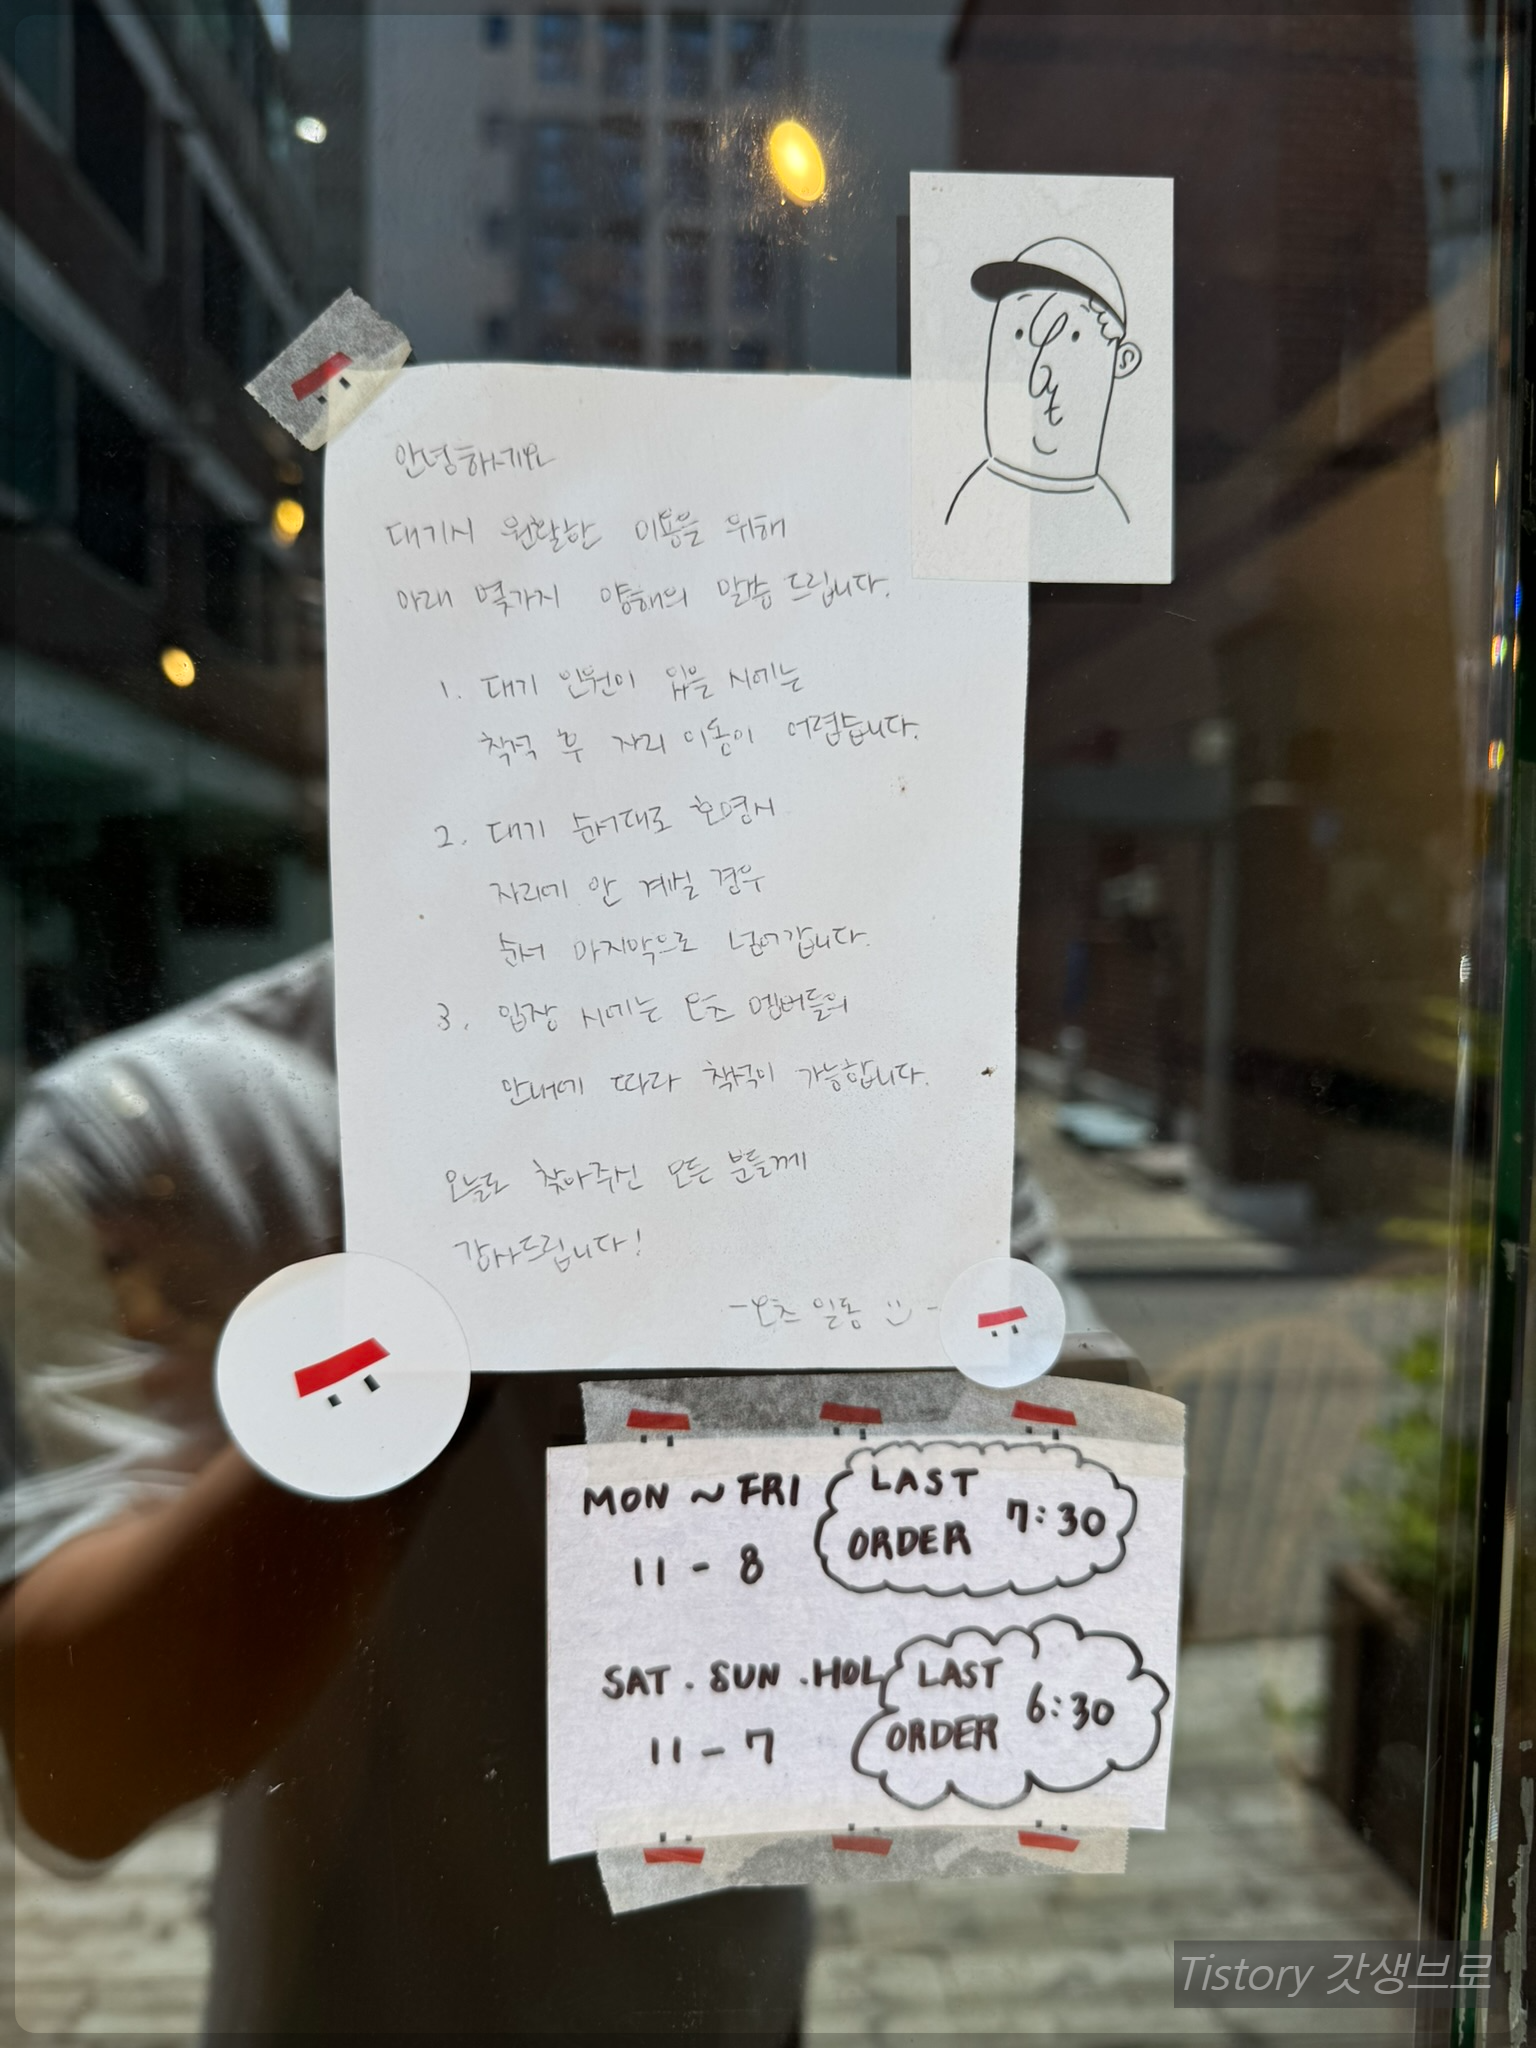 안녕하세요
대기시 원활한 이용을 위해
아래 몇가지 양해의 말씀 드립니다.
1. 대기 인원이 있을 시에는
착석 후 자리 이동이 어렵습니다.
2. 대기 순서대로 호명시
자리에 안 계실 경우
순서 마지막으로 넘어갑니다.
3. 입장 시에는 오츠 멤버들의
안내에 따라 착석이 가능합니다.
오늘도 찾아주신 모든 분들께
감사드립니다!
-오츠 일동 :) -
MON ~ FRI
11 - 8
LAST
ORDER 7:30
SAT . SUN . HOL
11 - 7
LAST
ORDER 6:30
Tistory 갓생브로